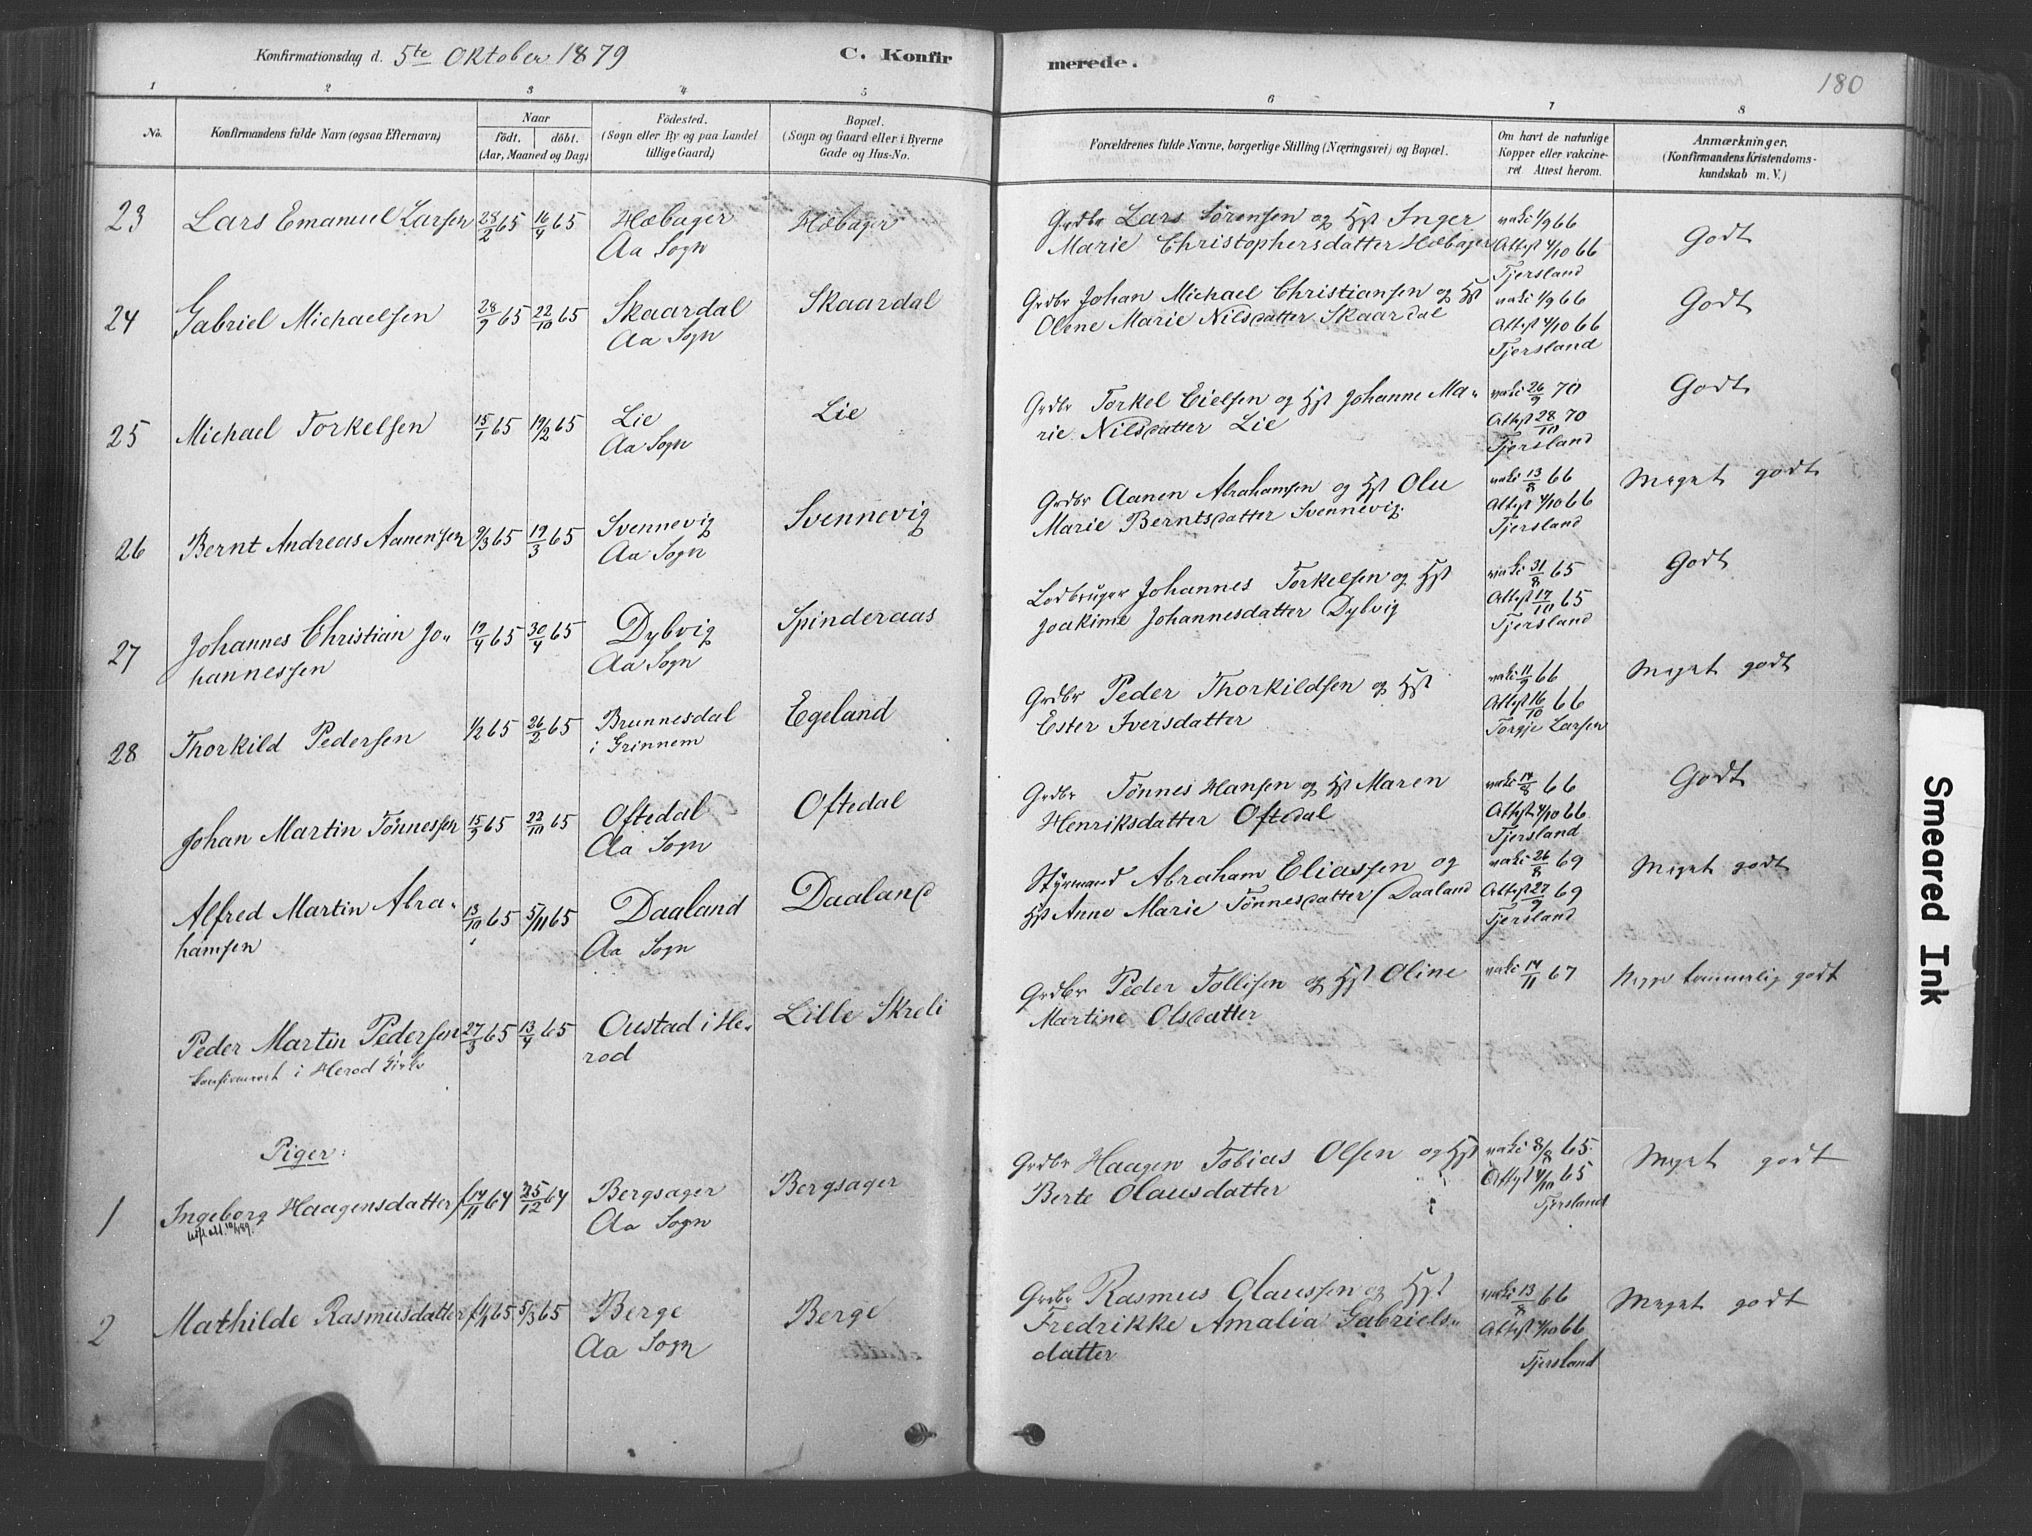 Konfirmationsdag d. 5te Oktober 1879
C. Konfirmerede.
180
1 2 3 4 5 6 7 8
No.
Konfirmandens fulde Navn (ogsaa Efternavn)
Naar
født. døbt.
(Aar, Maaned og Dag)
Fødested.
(Sogn eller By og paa Landet
tillige Gaard)
Bopæl.
(Sogn og Gaard eller i Byerne
Gade og Hus-No.
Forældrenes fulde Navne, borgerlige Stilling (Næringsvei) og Bopæl.
Om havt de naturlige
Kopper eller vakcine-
ret Attest herom.
Anmærkninger.
(Konfirmandens Kristendoms-
kundskab m. V.)
23 Lars Emanuel Larsen 28/2 65 16/4 65 Hæbager Hæbager Grdbr Lars Sørensen og Hst Inger vaki 1/9 66 Godt
Aa Sogn Marie Christophersdatter Hæbager Attest 4/10 66
Tjersland
24 Gabriel Michaelsen 28/9 65 22/10 65 Skaardal Skaardal Grdbr Johan Michael Christiansen og Hst vaki 1/9 66 Godt
Aa Sogn Olene Marie Nilsdatter Skaardal Attest 4/10 66
Tjersland
25 Michael Torkelsen 15/1 65 19/2 65 Lie Lie Grdbr Torkel Eielsen og Hst Johanne Ma- vaki 26/9 70 Godt
Aa Sogn rie Nilsdatter Lie Attest 28/10 70
Tjersland
26 Bernt Andreas Aanensen 9/3 65 19/3 65 Svennevig Svennevig Grdbr Aanen Abrahamsen og Hst Olu vaki 13/8 66 Meget godt
Aa Sogn Marie Berntsdatter Svennevig. Attest 4/10 66
Tjersland
27 Johannes Christian Jo- 19/4 65 30/4 65 Dybvig Spinderaas Lodbruger Johannes Torkelsen og Hst vaki 31/8 65 Godt
hannessen Aa Sogn Joakime Johannesdatter Dybvig Attest 17/10 65
Tjersland
28 Thorkild Pedersen 1/2 65 26/2 65 Brunnesdal Egeland Grdbr Peder Thorkildsen og Hst vaki 11/9 66 Meget godt
i Grinnem Ester Iversdatter Attest 16/10 66
Torgje Larsen
Johan Martin Tønnessen 15/9 65 22/10 65 Oftedal Oftedal Grdbr Tønnes Hansen og Hst Maren vaki 66 Godt
Aa Sogn Henriksdatter Oftedal Attest 4/10 66
Tjersland
Alfred Martin Abra- 13/10 65 5/11 65 Daaland Daaland Styrmand Abraham Eliassen og vaki 26/8 69 Meget godt
hamsen Aa Sogn Hst Anne Marie Tønnesdatter Daaland Attest 27/9 69
Tjersland
Peder Martin Pedersen 27/3 65 13/4 65 Oustad i He- Lille Skreli Grdbr Peder Tollisen og Hst Oline vaki 14/11 67 godt
konfirmeret i Herod Kirke rod Martine Olsdatter
Piger:
1 Ingeborg Haagensdatter f 14/11 64 25/12 64 Bergsager Bergsager Grdbr Haagen Tobias Olsen og Hst vaki 8/8 65 Meget godt
Aa Sogn Berte Olausdatter Attest 4/10 65
Tjersland
2 Mathilde Rasmusdatter 65 5/3 65 Berge Berge Grdbr Rasmus Olaussen og Hst vaki 13/8 66 Meget godt
Aa Sogn Fredrikke Amalia Gabriels- Attest 4/10 66
datter Tjersland
Smeared Ink